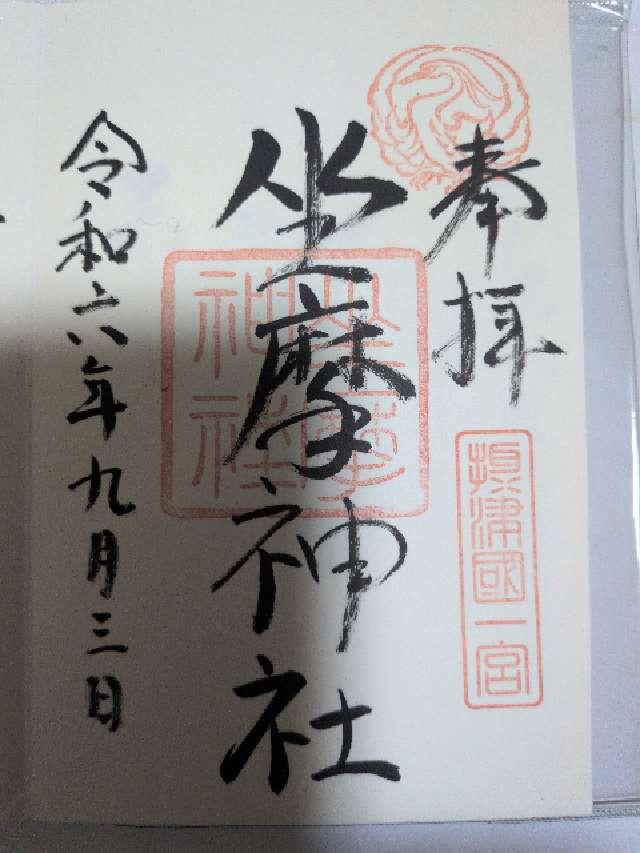 奉拝
摂津國一宮
坐摩神社
坐摩神社
令和六年九月三日